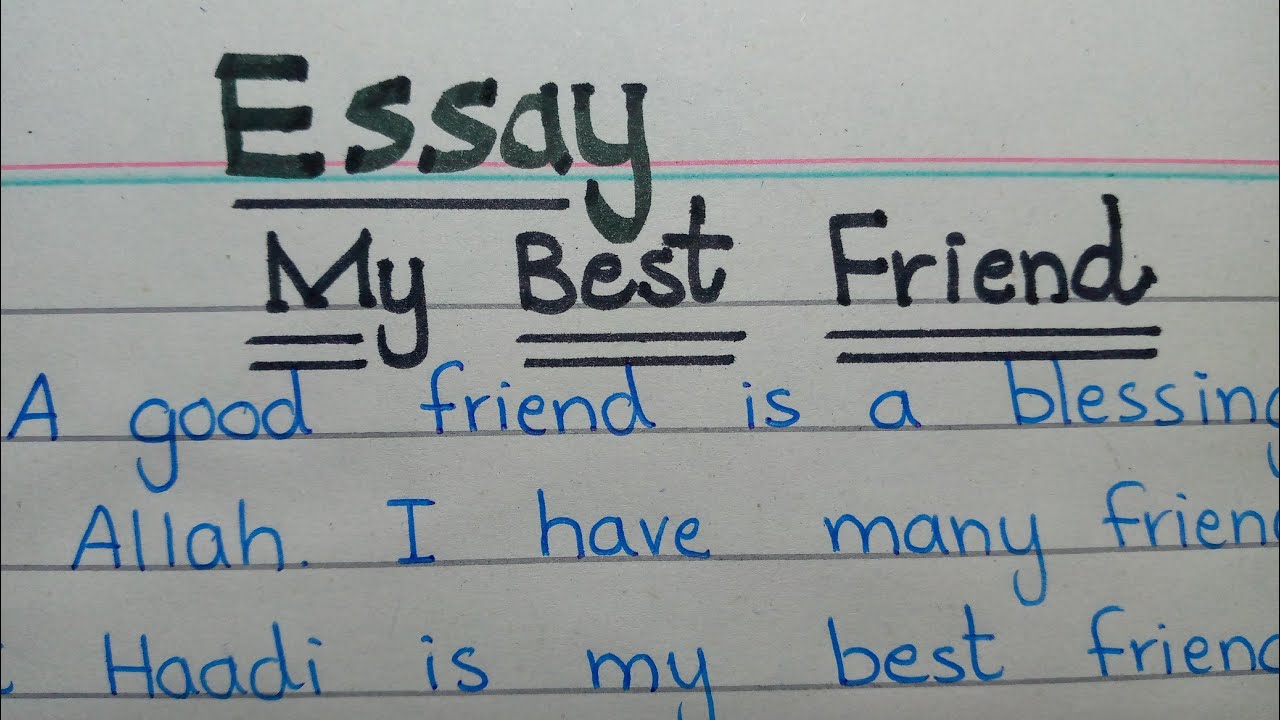 Essay
My Best Friend
A good friend is a blessing
Allah. I have many frien
Haadi is my best frien